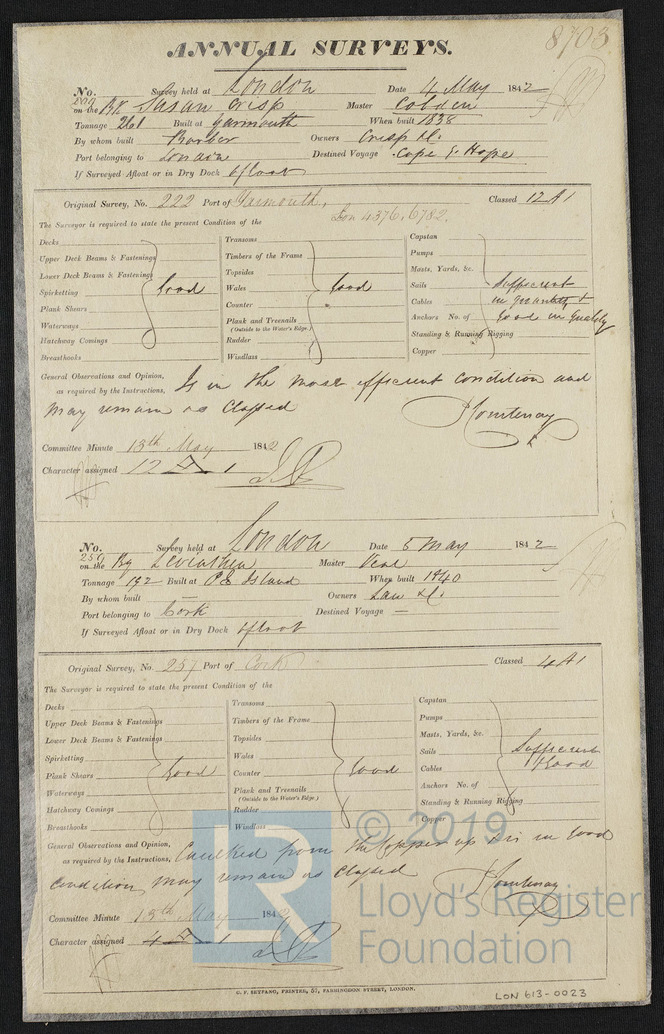 8703
ANNUAL SURVEYS.
No. 200 Survey held at London Date 4 May 1842
on the Bk Susan Crisp Master Cobden
Tonnage 261 Built at Yarmouth When built 1838
By whom built Barber Owners Crisp & Co.
Port belonging to London Destined Voyage Cape G. Hope
If Surveyed Afloat or in Dry Dock Afloat
Original Survey, No. 222 Port of Yarmouth, Classed 12 A 1
Lon 4376, 6782.
The Surveyor is required to state the present Condition of the
Decks
Upper Deck Beams & Fastenings
Lower Deck Beams & Fastenings
Spirketting
Plank Shears
Waterways
Hatchway Comings
Breasthooks
Good
Transoms
Timbers of the Frame
Topsides
Wales
Counter
Plank and Treenails
(Outside to the Water's Edge.)
Rudder
Windlass
Good
Capstan
Pumps
Masts, Yards, &c.
Sails
Cables
Anchors No. of
Standing & Running Rigging
Copper
Sufficient
in quantity &
good in quality
General Observations and Opinion,
as required by the Instructions, Is in the most efficient condition and
may remain as Classed
Courtenay
Committee Minute 13th May 1842
Character assigned 12 A 1
No. 259 Survey held at London Date 5 May 1842
on the Bg Leviathan Master Veal
Tonnage 192 Built at P E Island When built 1840
By whom built — Owners Law & Co.
Port belonging to Cork Destined Voyage —
If Surveyed Afloat or in Dry Dock Afloat
Original Survey, No. 257 Port of Cork Classed 4 A 1
The Surveyor is required to state the present Condition of the
Decks
Upper Deck Beams & Fastenings
Lower Deck Beams & Fastenings
Spirketting
Plank Shears
Waterways
Hatchway Comings
Breasthooks
Good
Transoms
Timbers of the Frame
Topsides
Wales
Counter
Plank and Treenails
(Outside to the Water's Edge.)
Rudder
Windlass
Good
Capstan
Pumps
Masts, Yards, &c.
Sails
Cables
Anchors No. of
Standing & Running Rigging
Copper
Sufficient
& Good
General Observations and Opinion,
as required by the Instructions, Caulked from the Copper up & is in Good
condition, may remain as Classed
Courtenay
Committee Minute 13th May 1842
Character assigned 4 A 1
© 2019
LR
Lloyd's Register
Foundation
C. F. SEYFANG, PRINTER, 57, FARRINGDON STREET, LONDON.
LON 613-0023